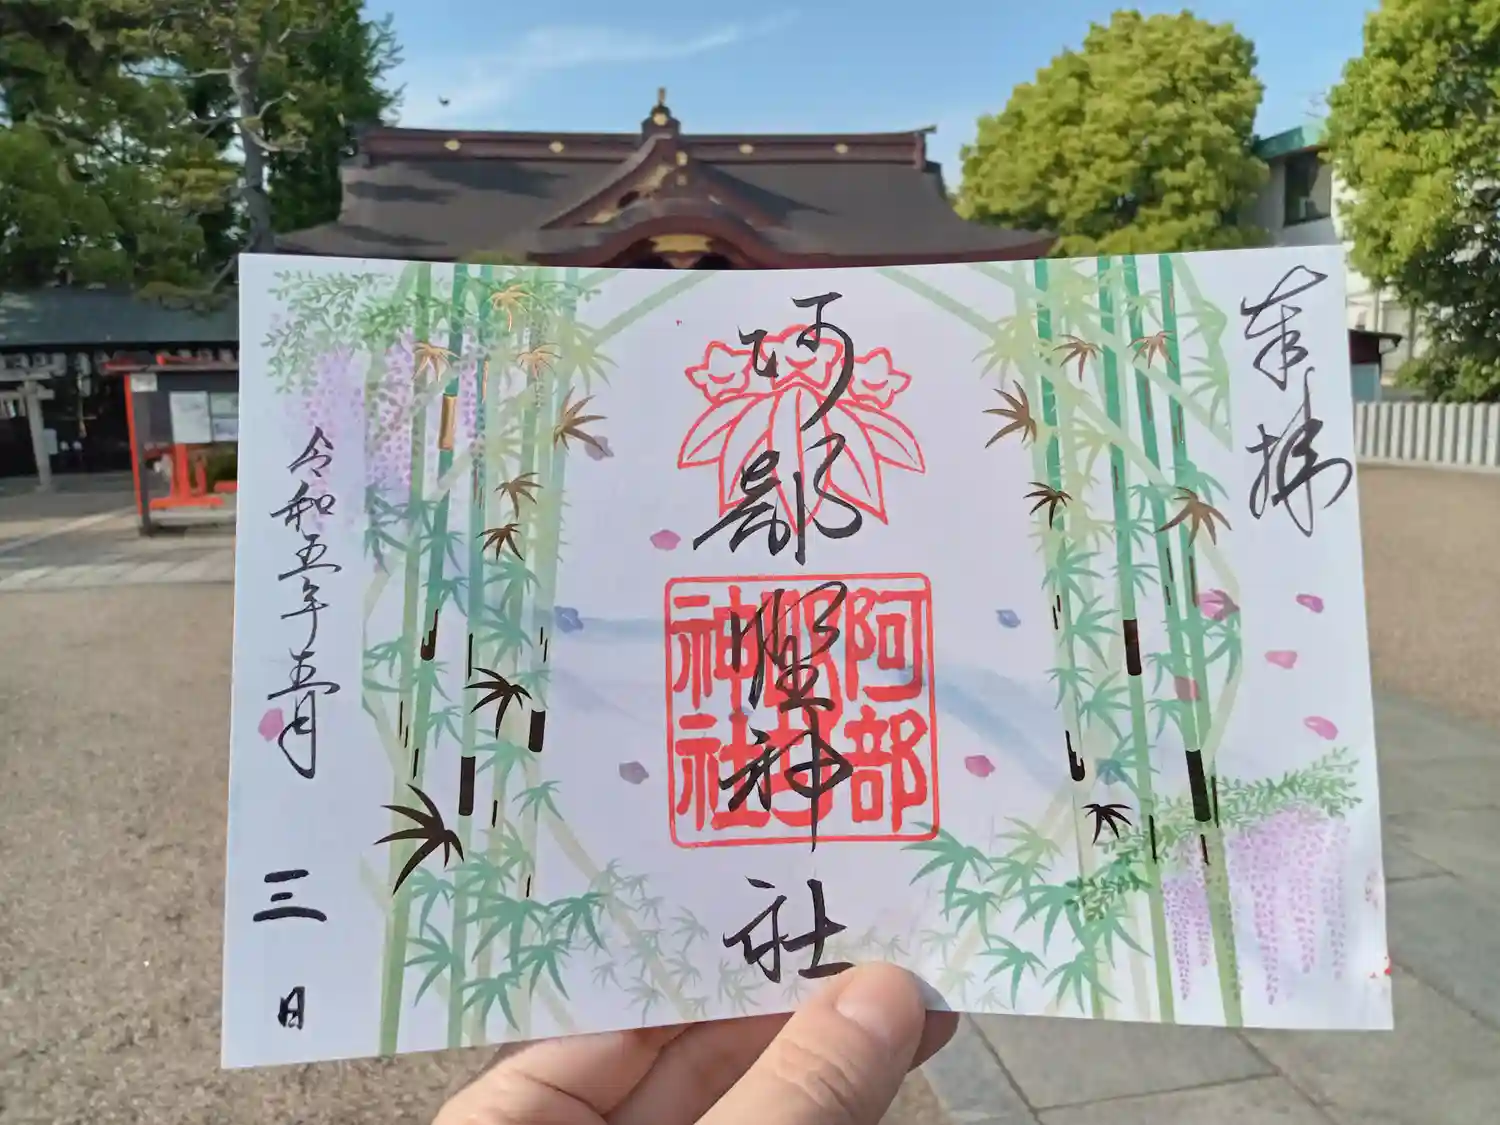 奉拝
阿部野神社
阿部
野
神社
令和五年五月
三日